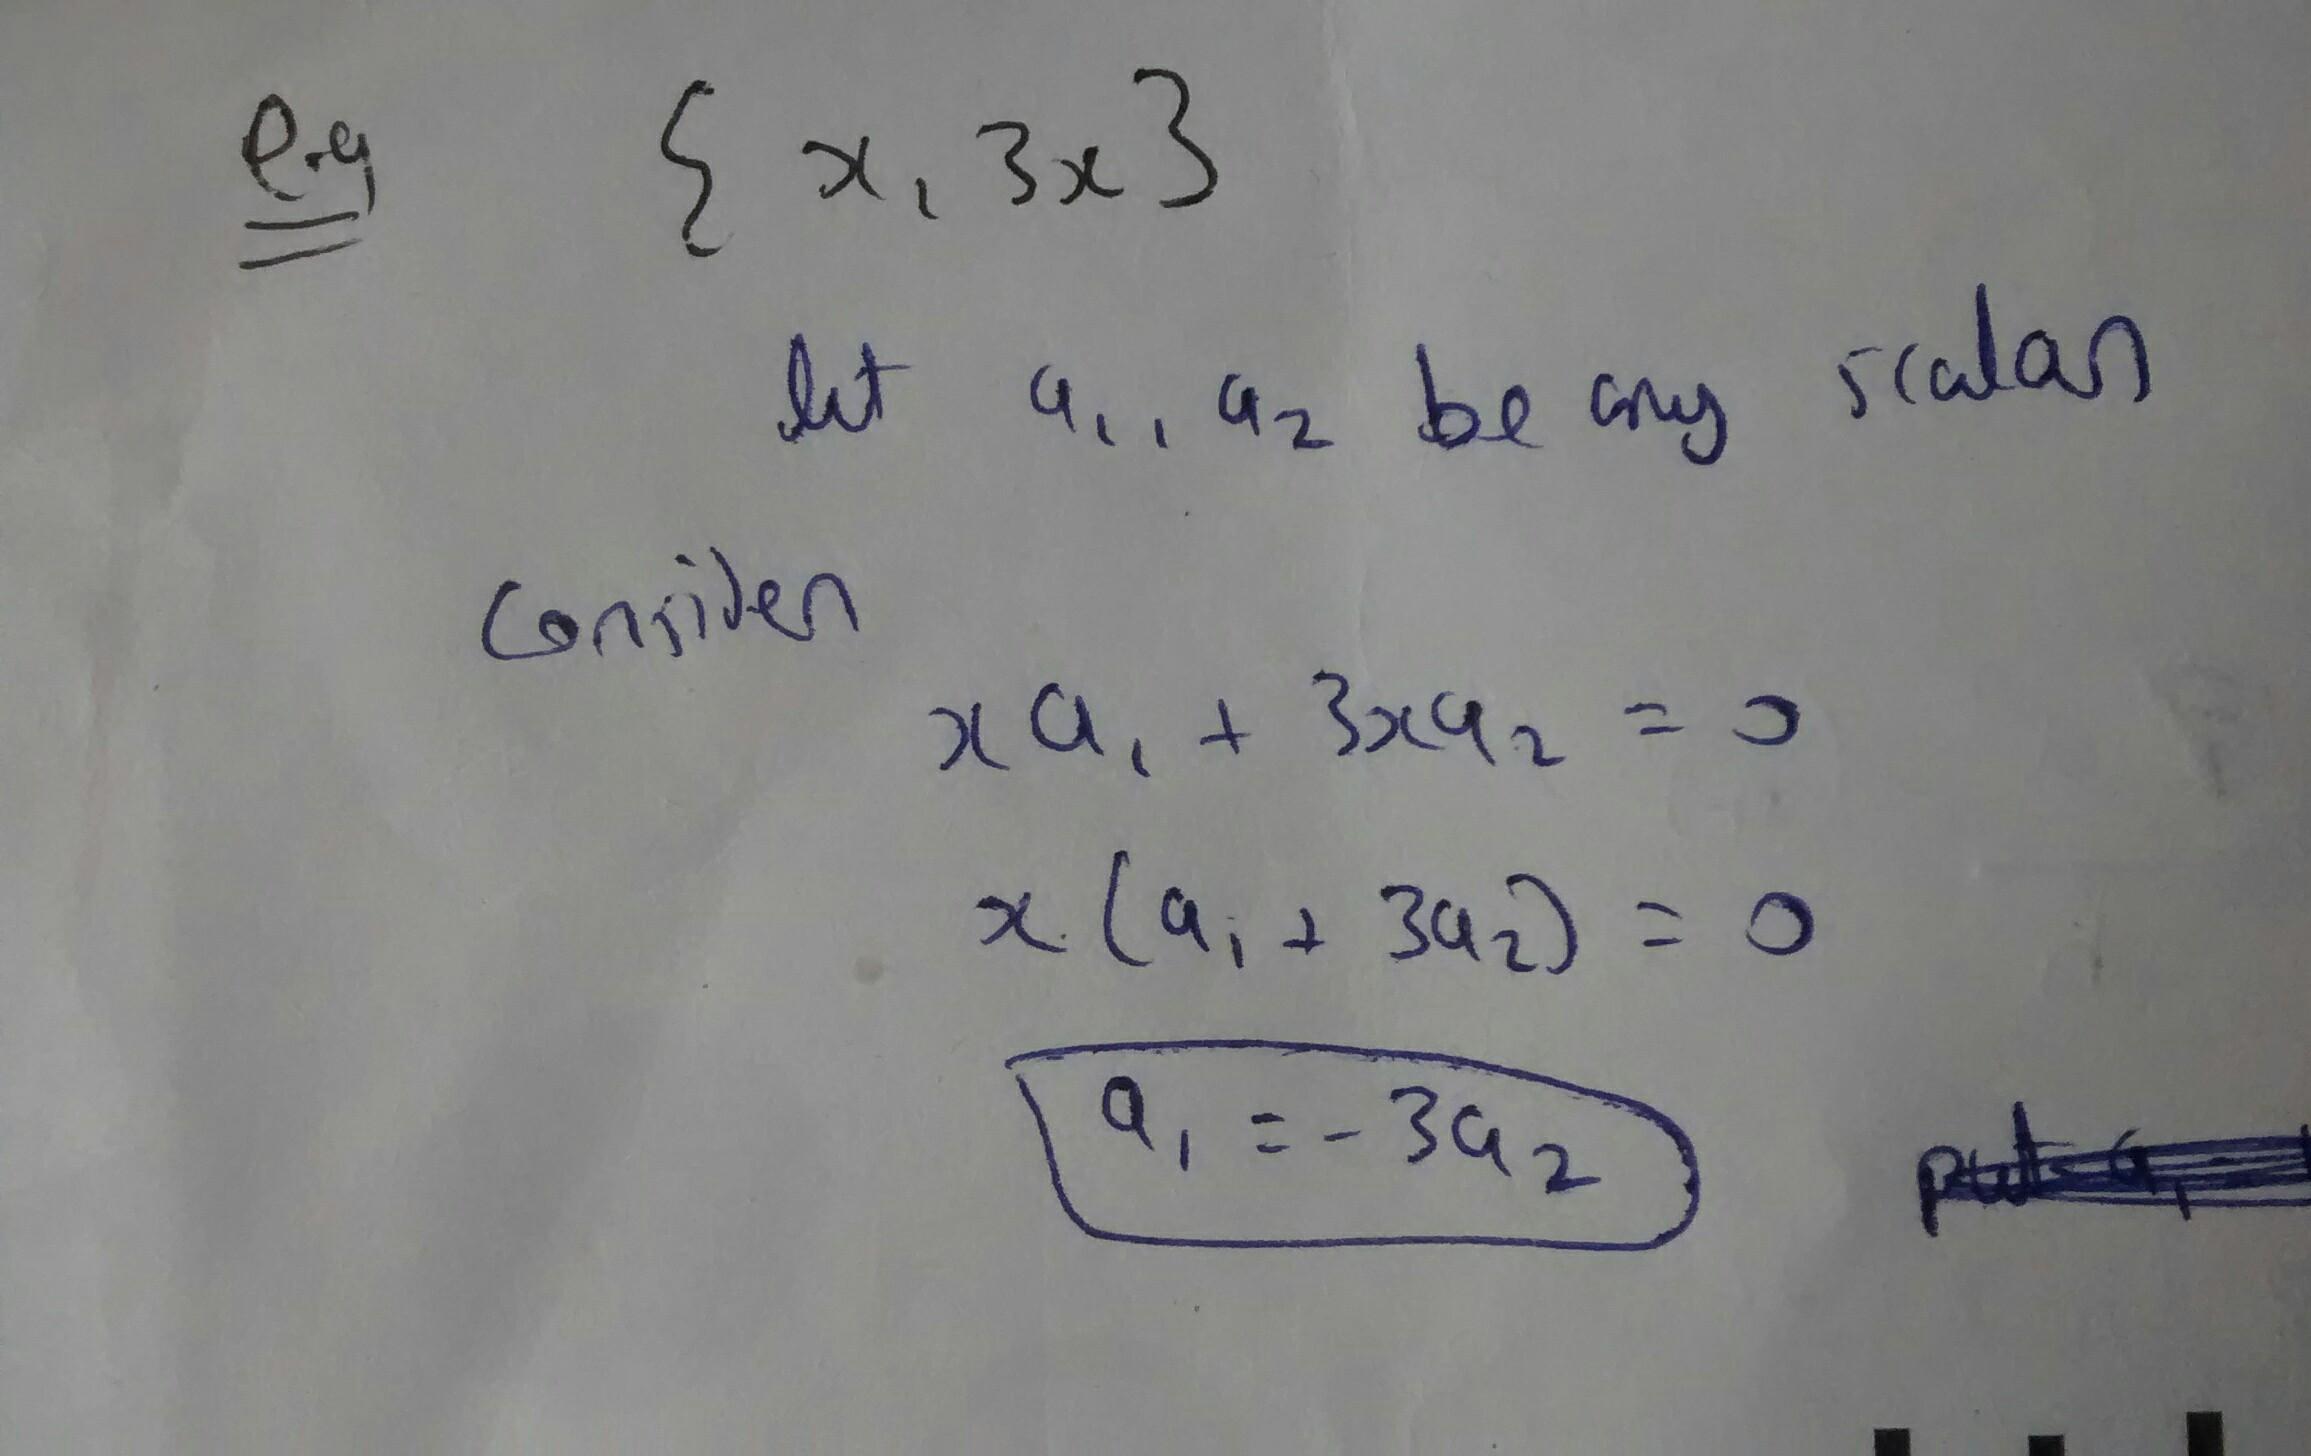 e.g { x, 3x}
let a₁, a₂ be any scalars
Consider
xa₁ + 3xa₂ = 0
x(a₁ + 3a₂) = 0
a₁ = -3a₂